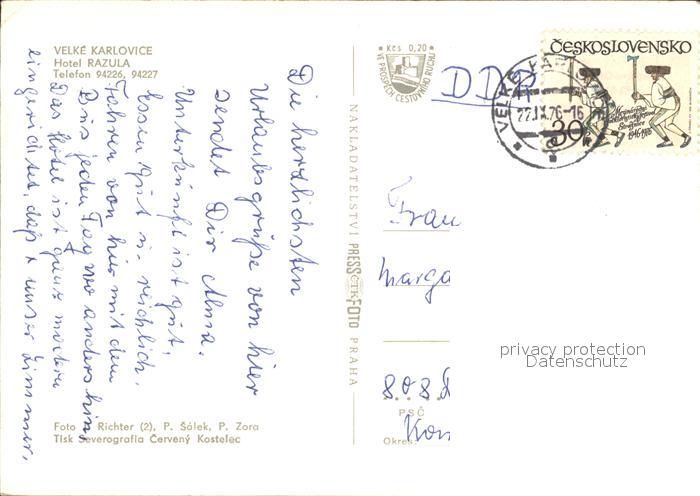 VELKÉ KARLOVICE
Hotel RAZULA
Telefon 94226, 94227
Die herzlichsten
Urlaubsgrüße von hier
sendet Dir Alma.
Unterkunft ist gut,
Essen gut u. reichlich.
Fahren von hier mit dem
Bus jeden Tag wo anders hin.
Das Hotel ist ganz modern
eingerichtet, daß unser Zimmer,
Foto Richter (2), P. Šálek, P. Zora
Tisk Severografia Červený Kostelec
NAKLADATELSTVÍ PRESSFOTO PRAHA
ČTK
Kčs 0,20
VE PROSPĚCH CESTOVNÍHO RUCHU
DDR
VELKÉ KAR
22.IX.76-16
ČESKOSLOVENSKO
30
Strážnice
1946-1976
Frau
Marga
808
PSČ
Kom
Okres:
privacy protection
Datenschutz